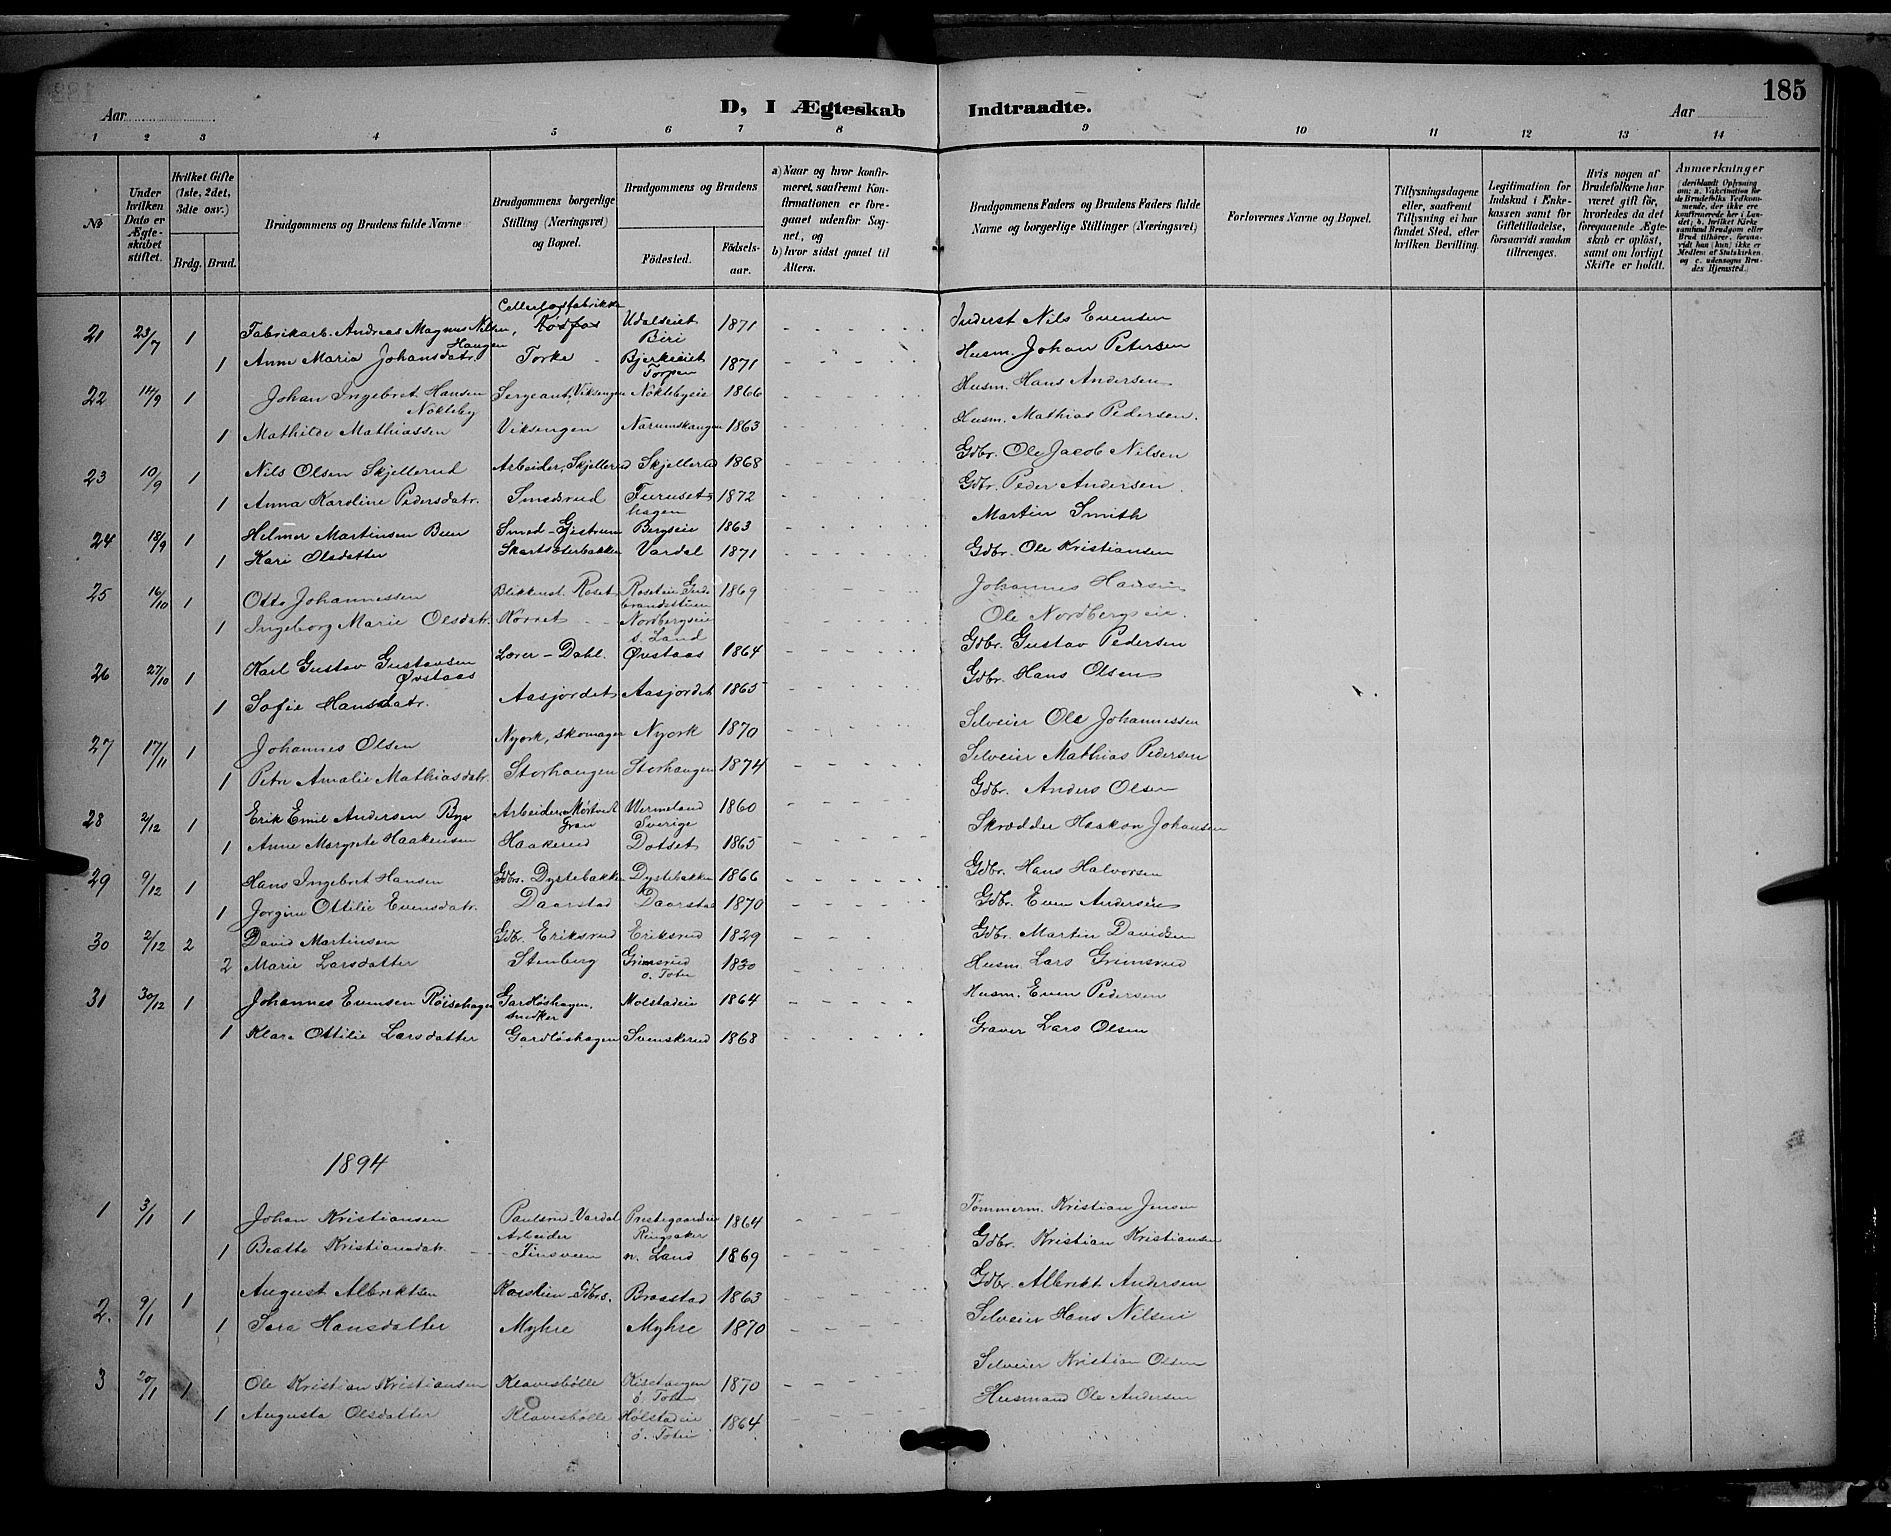 185
D, I Ægteskab Indtraadte.
Aar Aar
1 2 3 4 5 6 7 8 9 10 11 12 13 14
No
Under hvilken Dato er Ægteskabet stiftet.
Hvilket Gifte (1ste, 2det, 3die osv.)
Brdg. Brud.
Brudgommens og Brudens fulde Navne
Brudgommens borgerlige Stilling (Næringsvei) og Bopæl.
Brudgommens og Brudens
Fødested. Fødselsaar.
a) Naar og hvor konfirmeret, saafremt Konfirmationen er foregaaet udenfor Sognet, og
b) hvor sidst gaaet til Alters.
Brudgommens Faders og Brudens Faders fulde Navne og borgerlige Stillinger (Næringsvei)
Forlovernes Navne og Bopæl.
Tillysningsdagene eller, saafremt Tillysning ei har fundet Sted, efter hvilken Bevilling.
Legitimation for Indskud i Enkekassen samt for Giftetilladelse, forsaavidt saadan tiltrænges.
Hvis nogen af Brudefolkene har været gift før, hvorledes da det foregaaende Ægteskab er opløst, samt om lovligt Skifte er holdt.
Anmærkninger (deriblandt Oplysning om: a. Vaksination for de Brudefolks Vedkommende, der ikke ere konfirmerede her i Landet; b. hvilket Kirkesamfund Brudgom eller Brud tilhører, forsaavidt han (hun) ikke er Medlem af Statskirken, og c. udensogns Brudes Hjemsted.)
21 23/7 1 Fabrikarb. Andreas Magnus Nilsen Haugen, Cellulosefabrikke Rødfos Udalseiet Biri 1871 Inderst Nils Evensen
1 Anne Maria Johansdatr. Torke Bjerkeeiet Torpen 1871 Husm. Johan Petersen
22 14/9 1 Johan Ingebret Hansen Nøkleby Sergeant, Viksengen Nøklebyeie 1866 Husm. Hans Andersen
1 Mathilde Mathiassen Viksengen Narumshaugen 1863 Husm. Mathias Pedersen.
23 10/9 1 Nils Olsen Skjellerud Arbeider, Skjellerud Skjellerud 1868 Gdbr. Ole Jacob Nilsen
1 Anna Karoline Pedersdatr. Smedsrud Furusethagen 1872 Gdbr. Peder Andersen
24 18/9 1 Helmer Martinsen Beer Smed Gjestrum Bergseie 1863 Martin Smith
1 Kari Olsdatter Skartsæterbakken Vardal 1871 Gdbr. Ole Kristiansen
25 16/10 1 Otto Johannessen Blikkensl. Roset Roseteie Gudbrandsstuen 1869 Johannes Hansen
1 Ingeborg Marie Olsdatr. Korset Nordbergseie s. Land Ole Nordbergseie.
26 27/10 1 Karl Gustav Gustavsen Øvstaas Lærer - Dahl. Øvstaas 1864 Gdbr. Gustav Pedersen
1 Sofie Hansdatr. Aasjordet Aasjordet 1865 Gdbr. Hans Olsen
27 17/11 1 Johannes Olsen Nyork, skomager Nyork 1870 Selveier Ole Johannessen
1 Petra Amalie Mathiasdatr. Storhaugen Storhaugen 1874 Selveier Mathias Pedersen
28 2/12 1 Erik Emil Andersen Bye Arbeider, Gran Wermeland Sverige 1860 Gdbr. Anders Olsen
1 Anne Margrete Haakensen Haakerud Dotset 1865 Skrædder Haakon Johansen
29 9/12 1 Hans Ingebret Hansen Gdbrs. Dystebakken Dystebakken 1866 Gdbr. Hans Halvorsen
1 Jørgine Ottilie Evensdatr. Daarstad Daarstad 1870 Gdbr. Even Andersen
30 2/12 2 David Martinsen Gdbr. Eriksrud Eriksrud 1829 Gdbr. Martin Davidsen
2 Marie Larsdatter Stenberg Grimsrud ø. Toten 1830 Husm. Lars Grimsrud
31 30/12 1 Johannes Evensen Røisehagen Gardløshagen, snedker Molstadeie 1864 Husm. Even Pedersen
1 Klara Ottilie Larsdatter Gardløshagen Svenskerud 1868 Graver Lars Olsen
1894
1 3/1 1 Johan Kristiansen Paulsrud - Vardal Arbeider Prestegaardseie Ringsaker 1864 Tømmerm. Kristian Jensen
1 Beatte Kristiansdatr. Finsveen n. Land 1869 Gdbr. Kristian Kristiansen
2. 9/1 1 August Albriktsen Korslien - Gdbrs. Braastad 1863 Gdbr. Albrikt Andersen
1 Sera Hansdatter Myhre Myhre 1870 Selveier Hans Nilsen
3 20/1 1 Ole Kristian Kristiansen Klavesbølle Kisehaugen ø. Toten 1870 Selveier Kristian Olsen
1 Augusta Olsdatter Klavesbølle Hølstadeie ø. Toten 1864 Husmand Ole Andersen